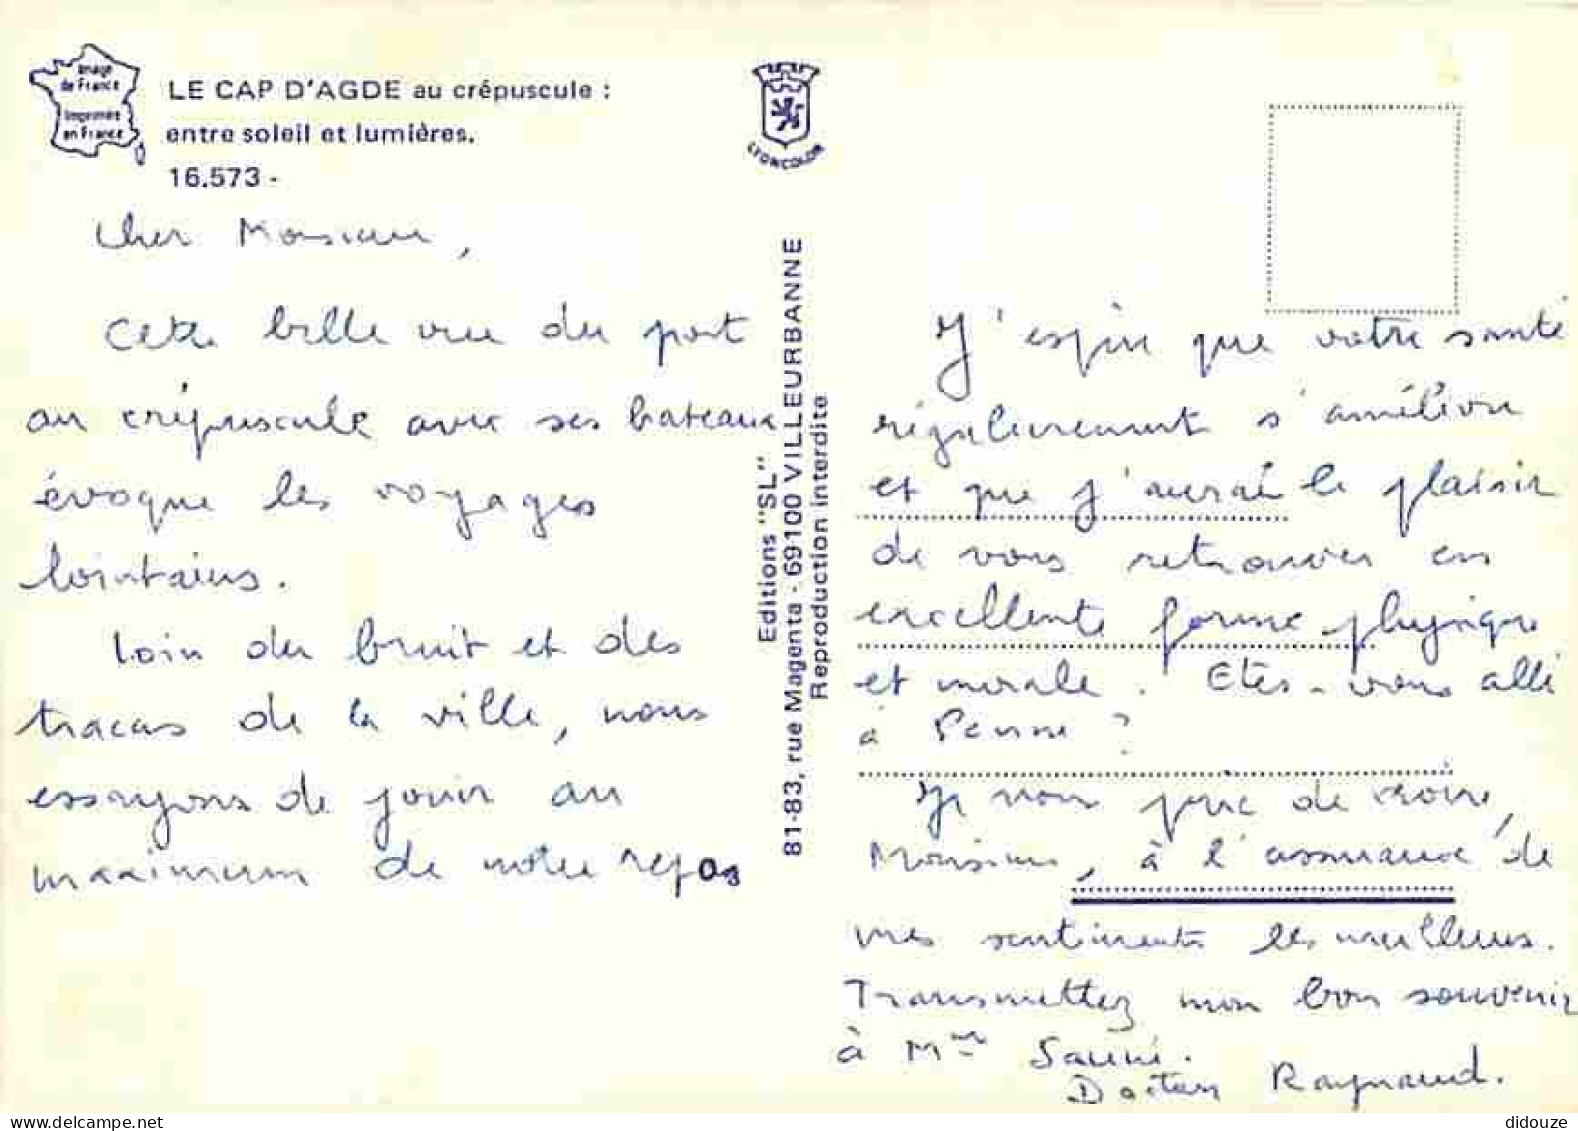 Image
de France
Imprimée
en France
LE CAP D'AGDE au crépuscule :
entre soleil et lumières.
16.573 -
LYONCOLOR
Cher Monsieur,
Cette belle vue du port
au crépuscule avec ses bateaux
évoque les voyages
lointains.
Loin du bruit et des
tracas de la ville, nous
essayons de jouir au
maximum de notre repos
Editions "SL"
81-83, rue Magenta - 69100 VILLEURBANNE
Reproduction interdite
J'espère que votre santé
régulièrement s'améliore
et que j'aurai le plaisir
de vous retrouver en
excellente forme physique
et morale. Etes-vous allé
à Penne ?
Je vous prie de croire,
Monsieur, à l'assurance de
mes sentiments les meilleurs.
Transmettez mon bon souvenir
à Mme
Docteur Raynaud.
didouze